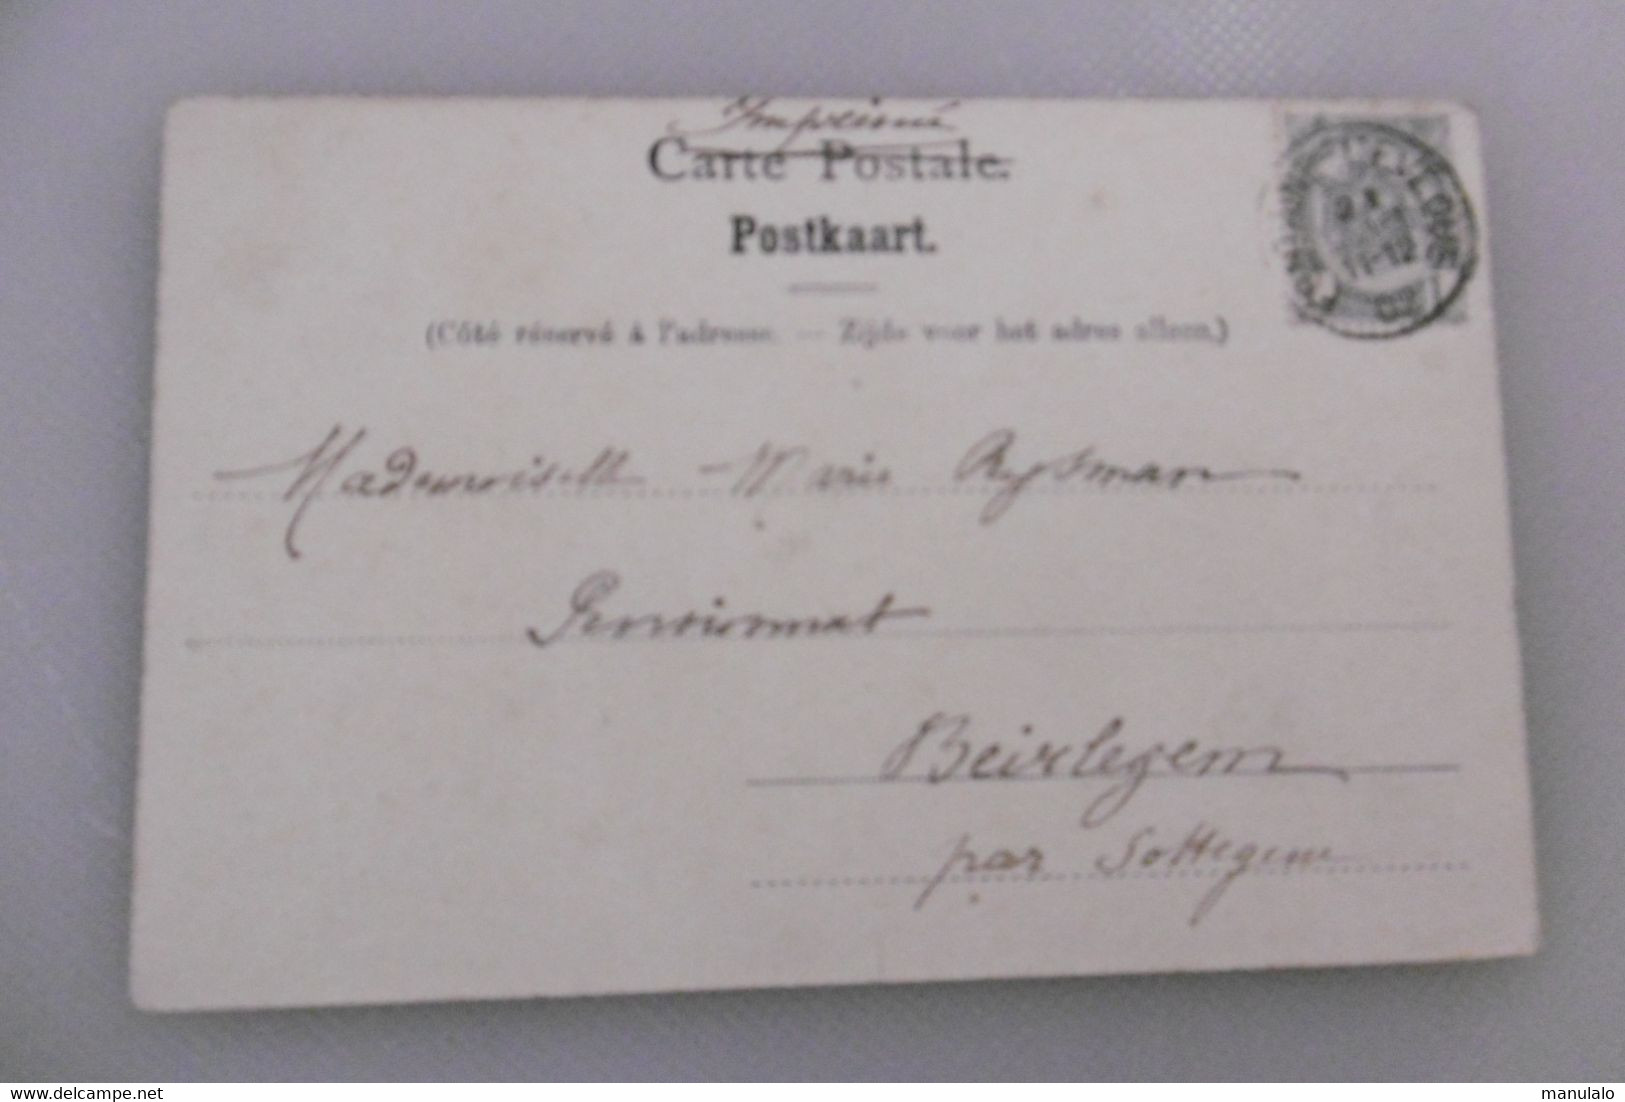 Imprimé
Carte Postale.
Postkaart.
(Côté réservé à l'adresse. — Zijde voor het adres alleen.)
11-12
Mademoiselle Marie Rysman
Pensionnat
Beirlegem
par Sottegem
delcampe.net
manulalo